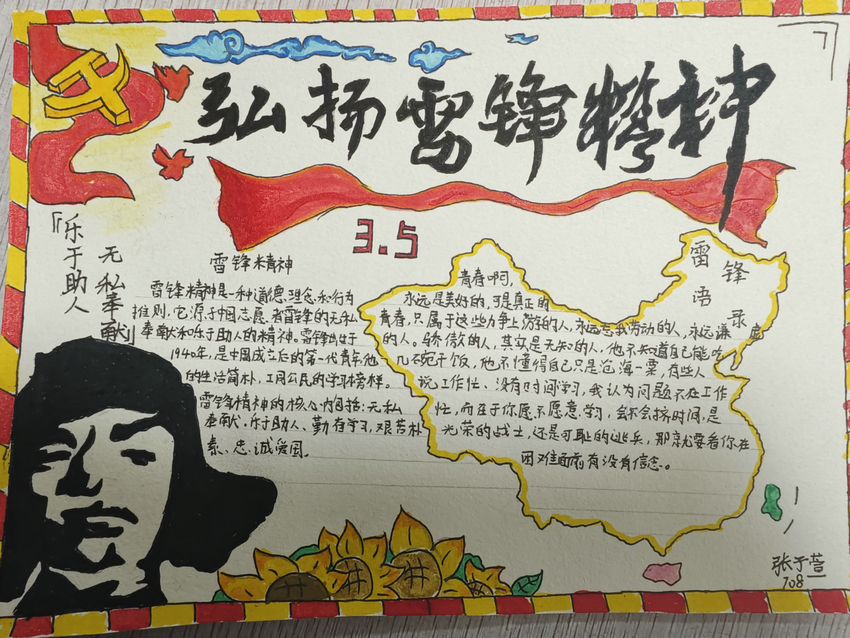 弘扬雷锋精神
3.5
「乐于助人
无私奉献」
雷锋精神
雷锋精神是一种道德、理念和行为
推则,它源于中国志愿者雷锋的无私
奉献和乐于助人的精神。雷锋出生于
1940年,是中国成立后的第一代青年,他
的生活简朴,工同公民的学习榜样。
雷锋精神的核心内包括:无私
奉献、乐于助人、勤奋学习,艰苦朴
素、忠诚爱国。
雷锋
语录
青春啊,
永远是美好的,可是真正的
青春,只属于这些力争上游的人,永远忘我劳动的人,永远谦虚
的人。骄傲的人,其实是无知的人,他不知道自己能吃
几碗干饭,他不懂得自己只是沧海一粟,有些人
说工作忙、没有时间学习,我认为问题不在工作
忙,而在于你愿不愿意学习,会不会挤时间,是
光荣的战士,还是可耻的逃兵,那就要看你在
困难面前有没有信念。
张于萱
708